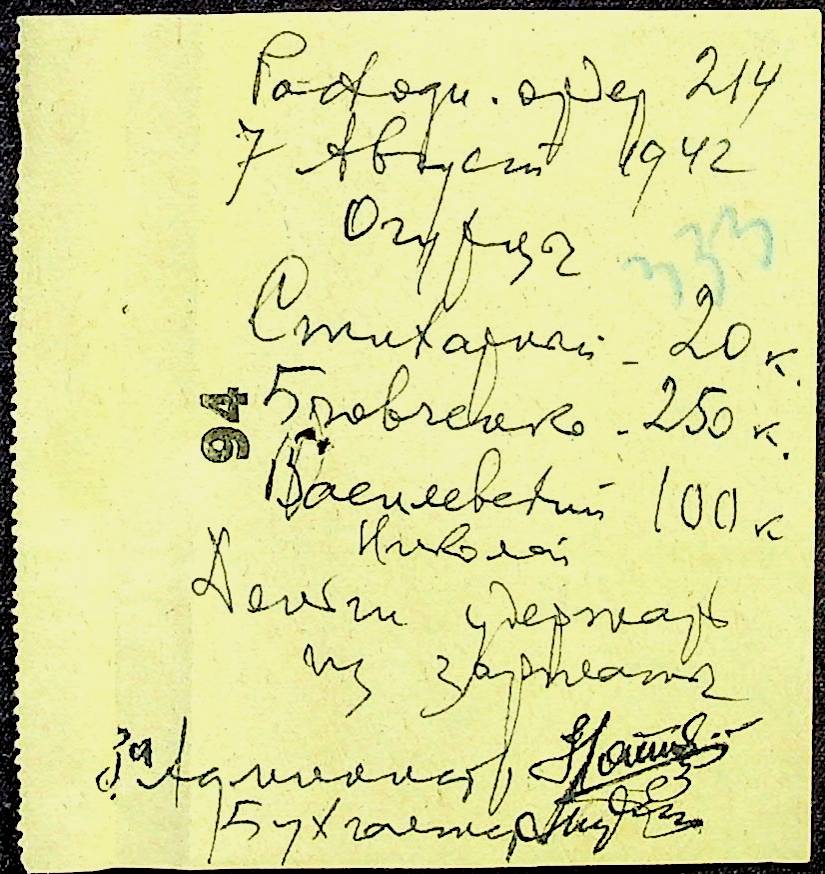 Расходн. ордер 214
7 Август 1942
Огурцы
333
Стихарный - 20 к.
94
Бровченко - 250 к.
Василевский 100 к
Николай
Деньги удержать
из зарплаты
За Администр.
Бухгалтер